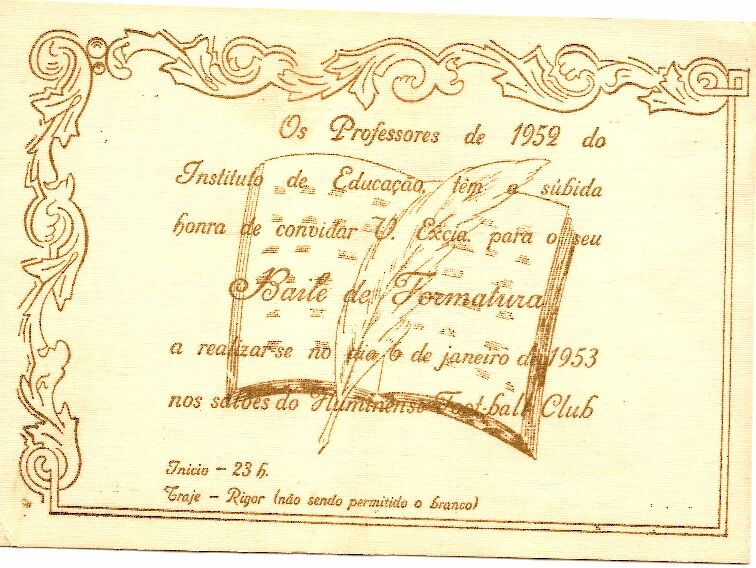 Os Professores de 1952 do
Instituto de Educação, têm a súbida
honra de convidar V. Excia. para o seu
Baile de Formatura
a realizar-se no dia 6 de janeiro de 1953
nos salões do Fluminense Foot-ball Club
Inicio - 23 h.
Traje - Rigor (não sendo permitido o branco)